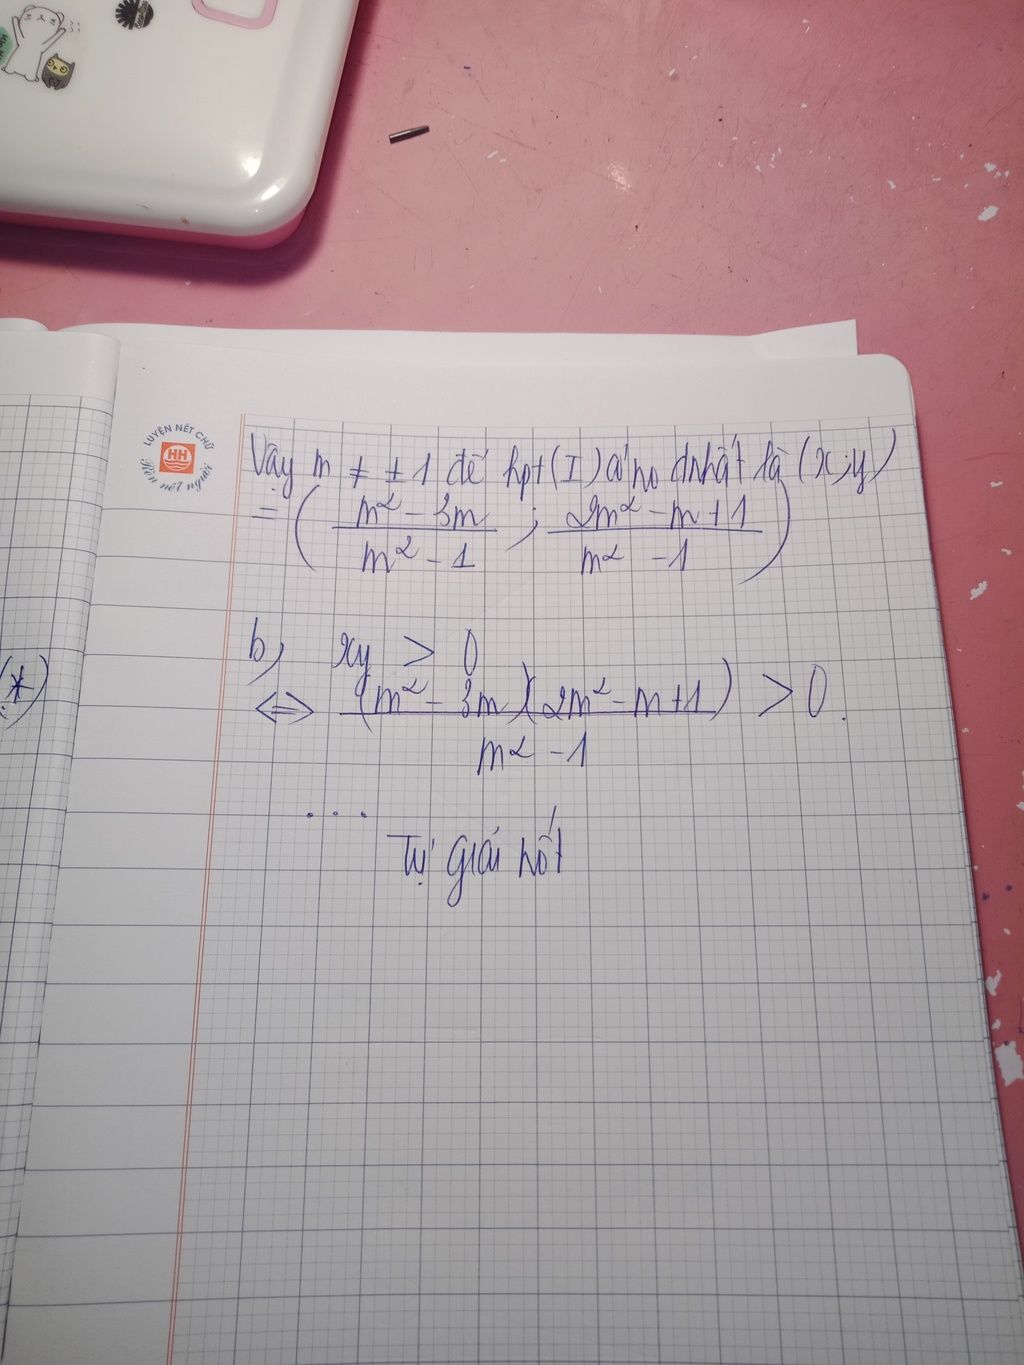 LUYỆN NÉT CHỮ
HH
Rèn nết người
Vậy m ≠ ± 1 để hpt (I) có no dnhất là (x;y)
= ( m² - 3m / m² - 1 ; 2m² - m + 1 / m² - 1 )
b, xy > 0
(*)
⇔ (m² - 3m)(2m² - m + 1) / m² - 1 > 0.
....
Tự giải nốt